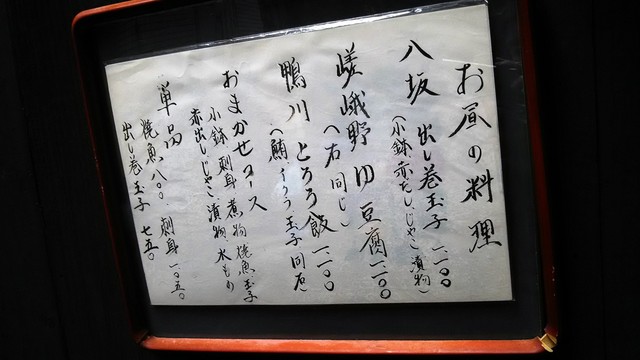 お昼の料理
八坂 出し巻玉子 一一〇〇
(小鉢、赤だし、じゃこ、漬物)
嵯峨野 ゆ豆腐 一一〇〇
(右同じ)
鴨川 とろろ飯 一一〇〇
(鮪、とろろ、玉子、同右)
おまかせコース
小鉢 刺身 煮物 焼魚 玉子
赤出し じゃこ 漬物 水もの
単品
焼魚 八〇〇 刺身 一〇五〇
出し巻玉子 七五〇